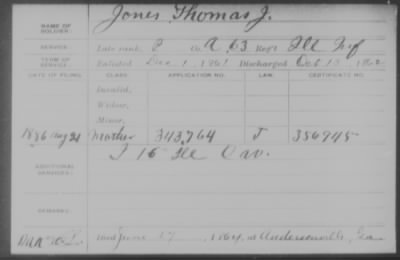 Jones, Thomas J.
NAME OF SOLDIER:
SERVICE: Late rank, P Co. A, 63 Reg't Ill Inf
TERM OF SERVICE: Enlisted Dec 1, 1861 Discharged Oct 1862
DATE OF FILING. CLASS. APPLICATION NO. LAW. CERTIFICATE NO.
Invalid,
Widow,
Minor,
1886 Aug 21 Mother 343,764 J 356945
I 15 Ill Cav.
ADDITIONAL SERVICES:
REMARKS:
Died June 17, 1864, at Andersonville, Ga